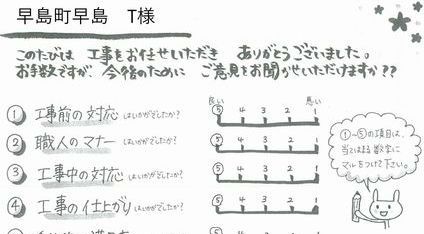 早島町早島 T様
このたびは 工事をお任せいただき ありがとうございました。
お手数ですが、今後のために ご意見をお聞かせいただけますか??
良い 悪い
① 工事前の対応 はいかがでしたか? ⑤ 4 3 2 1
② 職人のマナー はいかがでしたか? ⑤ 4 3 2 1
③ 工事中の対応 はいかがでしたか? ⑤ 4 3 2 1
④ 工事の仕上がり はいかがでしたか? ⑤ 4 3 2 1
①~⑤の項目は、
当てはまる数字に
マルをつけて下さい。